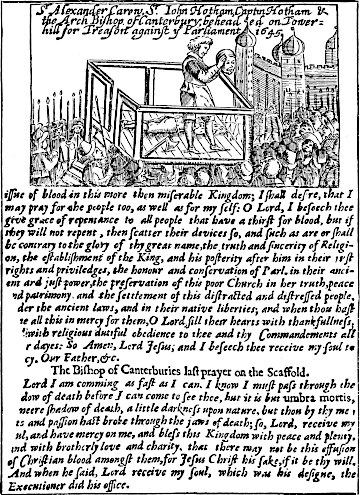 Sr Alexander Carew, Sr. Iohn Hotham, Captin Hotham &
the Arch Bishop of Canterbury, behead ed on Tower-
hill for Treason against ye Parliament 1645
issue of blood in this more then miserable Kingdom; I shall desre, that I
may pray for the people too, as well as for my self: O Lord, I beseech thee
give grace of repentance to all people that have a thirst for blood, but if
they will not repent, then scatter their devices so, and such as are or shall
be contrary to the glory of thy great name, the truth and sincerity of Religi-
on, the establishment of the King, and his posterity after him in their just
rights and priviledges, the honour and conservation of Parl. in their anci-
ent and just power, the preservation of this poor Church in her truth, peace
nd patrimony and the settlement of this distracted and distressed people,
der the ancient laws, and in their native liberties; and when thou hast
e all this in mercy for them, O Lord, fill their hearts with thankfullness,
with religious dutiful obedience to thee and thy Commandements all
r dayes: So Amen, Lord Jesus; and I beseech thee receive my soul to
cy. Our Father, &c.
The Bishop of Canterburies last prayer on the Scaffold.
Lord I am comming as fast as I can. I know I must pass through the
dow of death before I can come to see thee, but it is but umbra mortis,
meere shadow of death, a little darkness upon nature, but thou by thy me
ts and passion hast broke through the jaws of death; so, Lord, receive my
ul, and have mercy on me, and bless this Kingdom with peace and plenty,
ind with brotherly love and charity, that there may not be this effusion
of Christian blood amongst them, for Jesus Christ his sake, if it be thy will.
And when he said, Lord receive my soul, which was his designe, the
Executioner did his office.